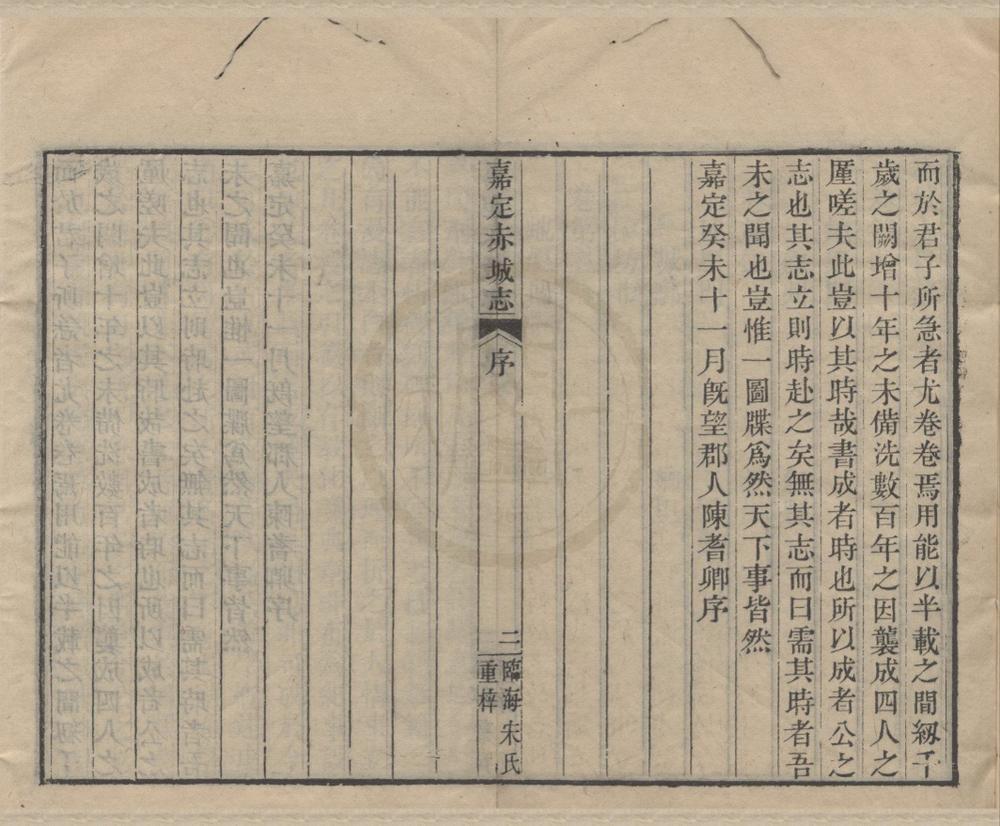 而於君子所急者尤卷卷焉用能以半載之間剏千
歲之闕增十年之未備洗數百年之因襲成四人之
厪嗟夫此豈以其時哉書成者時也所以成者公之
志也其志立則時赴之矣無其志而曰需其時者吾
未之聞也豈惟一圖牒爲然天下事皆然
嘉定癸未十一月旣望郡人陳耆卿序
嘉定赤城志
序
二
臨海宋氏
重梓